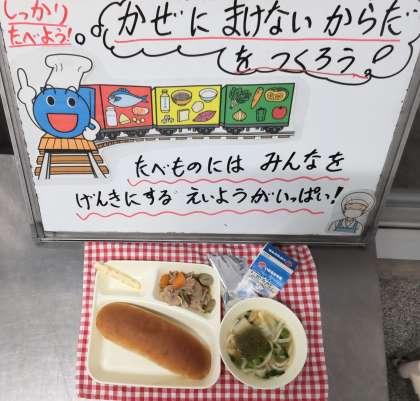 しっかり
たべよう!
かぜに まけない からだ
を つくろう!
たべものには みんなを
げんきにする えいようがいっぱい!